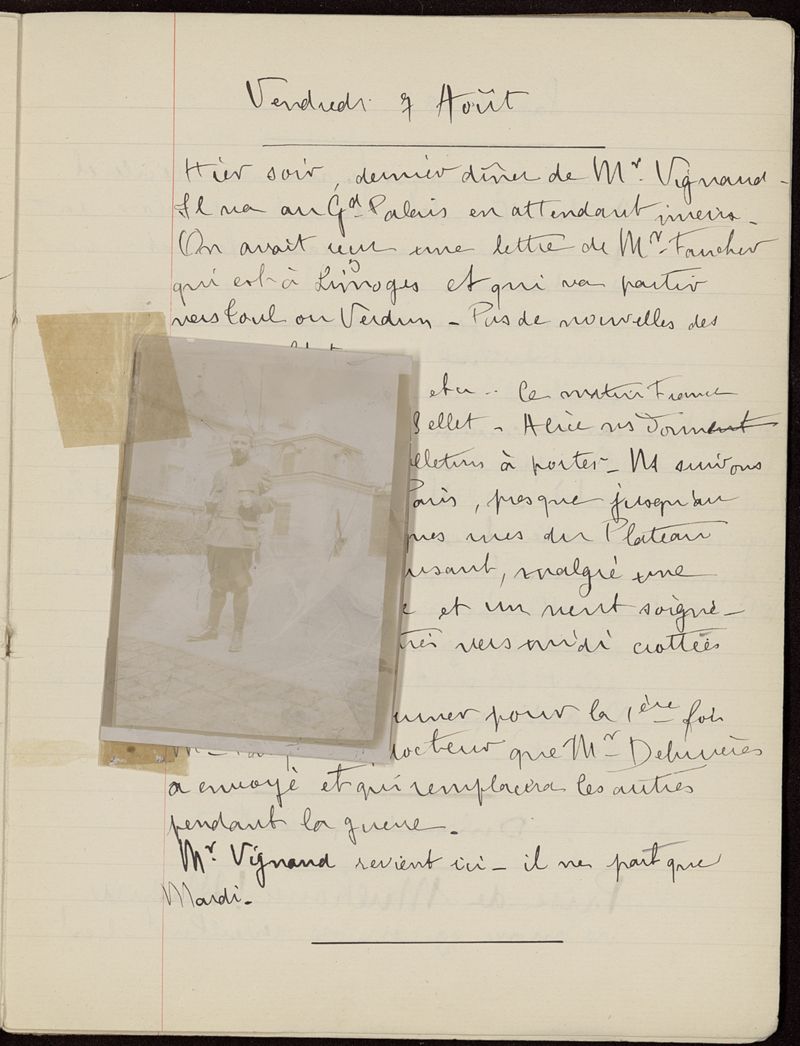 Vendredi 7 Août
Hier soir, dernier dîner de Mr. Vignaud -
Il va au Gd Palais en attendant
On avait une lettre de Mr Faucher
qui est à Limoges et qui va partir
vers Toul ou Verdun - Pas de nouvelles des
Ce matin France
Bellet - Alice ns donnent
lletins à porter - Ns suivons
Paris, presque jusqu'au
ques rues du Plateau
usant, malgré une
e et un vent soigné -
trés vers midi crottées
uner pour la 1ère fois
octeur que Mr
a envoyé et qui remplacera les autres
pendant la guerre.
Mr Vignaud revient ici - il ne part que
Mardi -